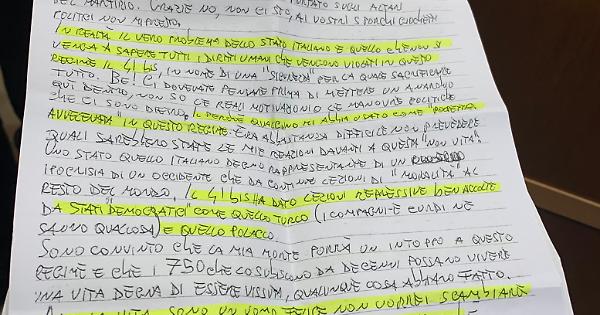 DEL MARTIRIO. GRAZIE NO, NON CI STO, AI VOSTRI SPORCHI GIOCHETTI
POLITICI NON MI PRESTO.
IN REALTÀ IL VERO PROBLEMA DELLO STATO ITALIANO È QUELLO CHE NON SI
VENGA A SAPERE TUTTI I DIRITTI UMANI CHE VENGONO VIOLATI IN QUESTO
REGIME IL 41 bis, IN NOME DI UNA "SICUREZZA" PER LA QUALE SACRIFICARE
TUTTO. BE! CI DOVEVATE PENSARE PRIMA DI METTERE UN ANARCHICO
QUI DENTRO, NON SO LE REALI MOTIVAZIONI O LE MANOVRE POLITICHE
CHE CI SONO DIETRO. IL PERCHÈ QUALCUNO MI ABBIA USATO COME "POLPETTA
AVVELENATA" IN QUESTO REGIME. ERA ABBASTANZA DIFFICILE NON PREVEDERE
QUALI SAREBBERO STATE LE MIE REAZIONI DAVANTI A QUESTA "NON VITA".
UNO STATO QUELLO ITALIANO DEGNO RAPPRESENTANTE DI UN
IPOCRISIA DI UN OCCIDENTE CHE DA CONTINUE LEZIONI DI "MORALITÀ" AL
RESTO DEL MONDO. IL 41 bis HA DATO LEZIONI REPRESSIVE BEN ACCOLTE
DA STATI "DEMOCRATICI" COME QUELLO TURCO (I COMPAGNI/E CURDI NE
SANNO QUALCOSA) E QUELLO POLACCO.
SONO CONVINTO CHE LA MIA MORTE PORRÀ UN INTOPPO A QUESTO
REGIME E CHE I 750 CHE LO SUBISCONO DA DECENNI POSSANO VIVERE
UNA VITA DEGNA DI ESSERE VISSUTA, QUALUNQUE COSA ABBIANO FATTO.
VITA, SONO UN UOMO FELICE NON VORREI SCAMBIARE